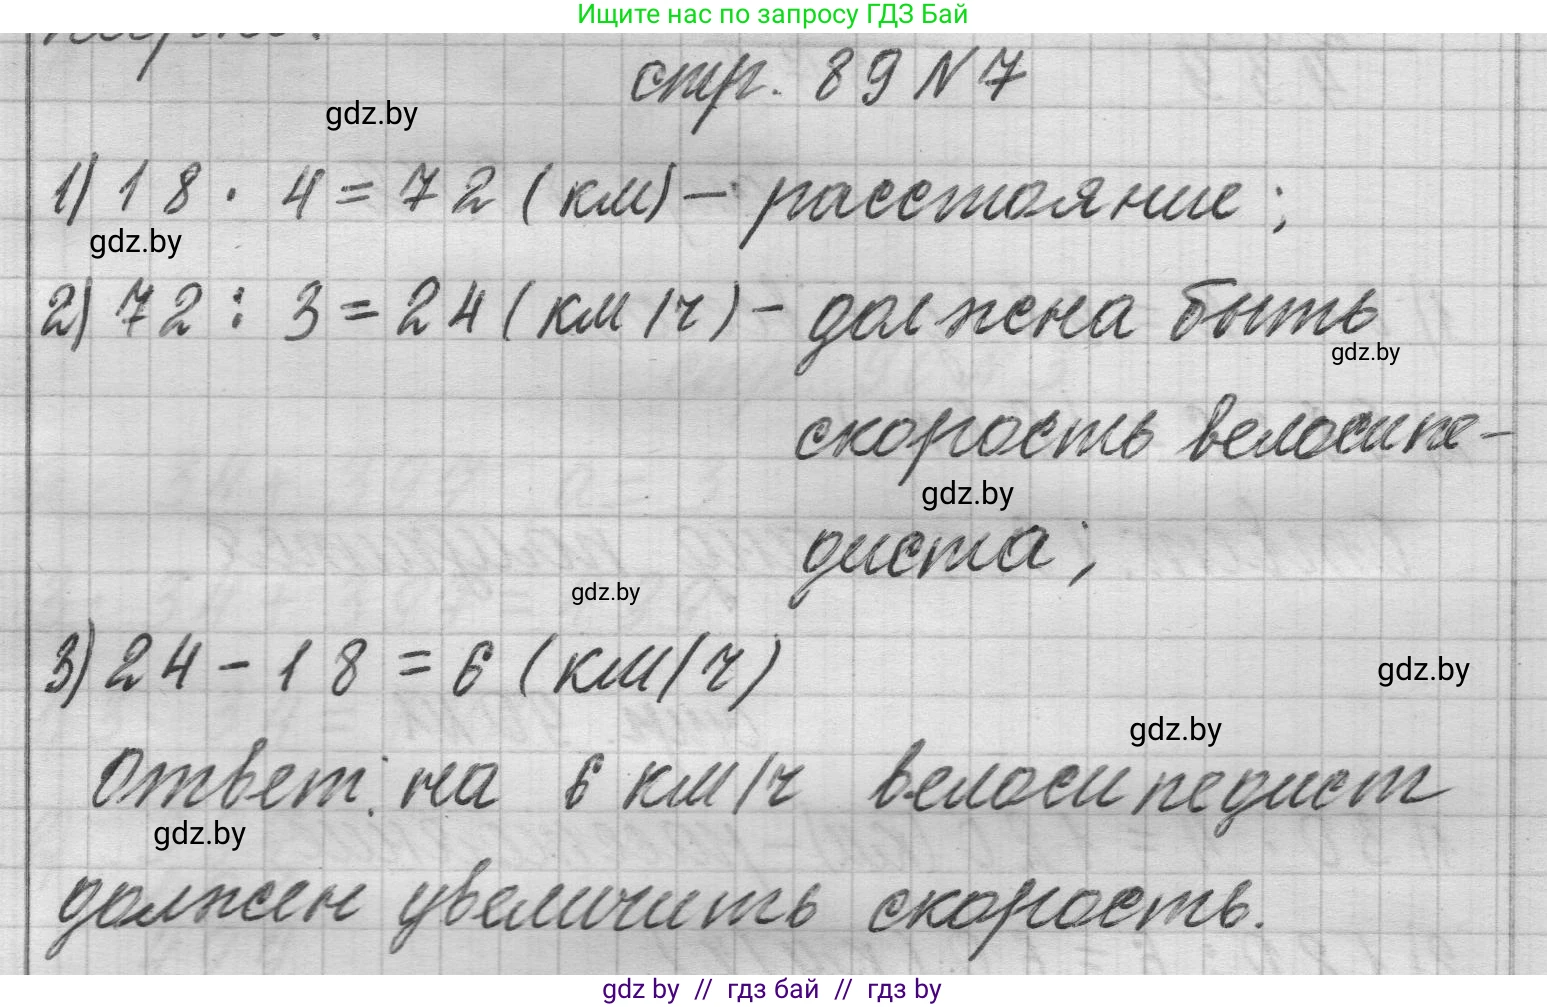 Ищите нас по запросу ГДЗ Бай
стр. 89 N 7
gdz.by
1) 18 · 4 = 72 (км) – расстояние;
gdz.by
2) 72 : 3 = 24 (км/ч) – должна быть
gdz.by
скорость велосипе-
gdz.by
диста;
gdz.by
3) 24 – 18 = 6 (км/ч)
gdz.by
gdz.by
Ответ: на 6 км/ч велосипедист
gdz.by
должен увеличить скорость.
gdz by // гдз бай // гдз by